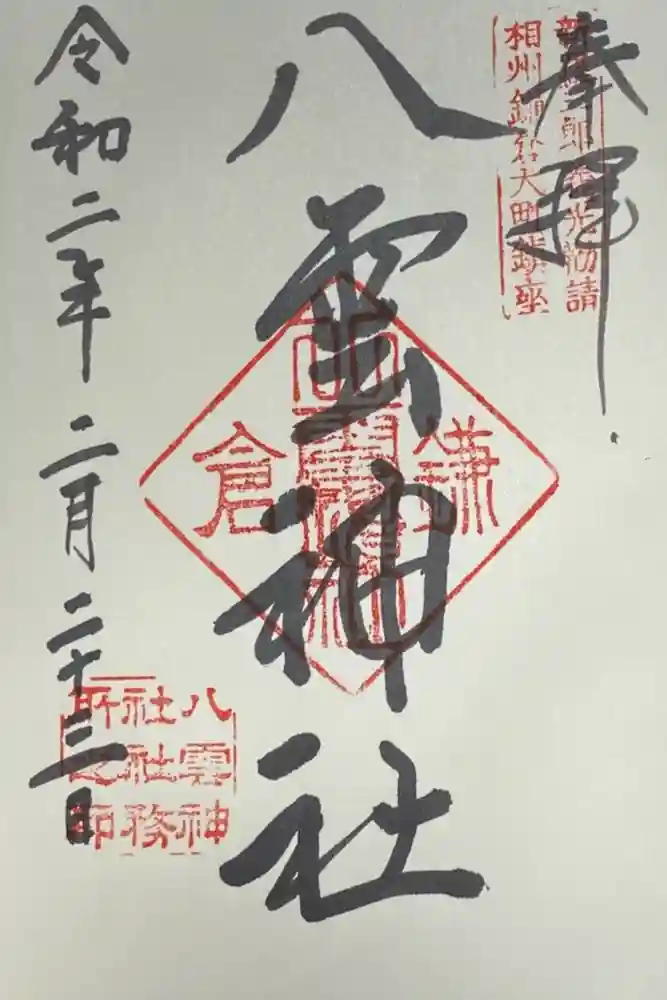 奉拝
新羅三郎義光勧請
相州鎌倉大町鎮座
八雲神社
鎌倉
令和二年二月二十三日
八雲神
社社務
所之印